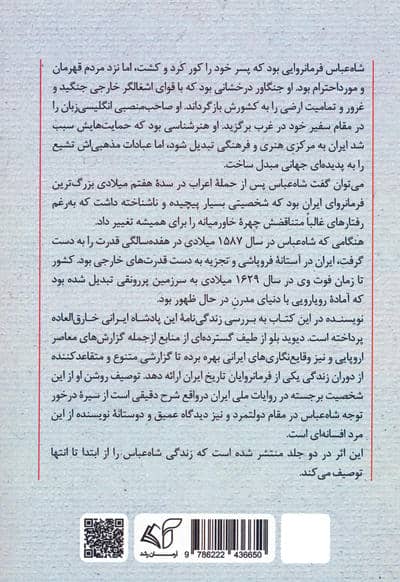 شاه‌عباس فرمانروایی بود که پسر خود را کور کرد و کشت، اما نزد مردم قهرمان
و مورداحترام بود. او جنگاور درخشانی بود که با قوای اشغالگر خارجی جنگید و
غرور و تمامیت ارضی را به کشورش بازگرداند. او صاحب‌منصبی انگلیسی‌زبان را
در مقام سفیر خود در غرب برگزید. او هنرشناسی بود که حمایت‌هایش سبب
شد ایران به مرکزی هنری و فرهنگی تبدیل شود، اما عبادات مذهبی‌اش تشیع
را به پدیده‌ای جهانی مبدل ساخت.
می‌توان گفت شاه‌عباس پس از حملهٔ اعراب در سدهٔ هفتم میلادی بزرگ‌ترین
فرمانروای ایران بود که شخصیتی بسیار پیچیده و ناشناخته داشت که به‌رغم
رفتارهای غالباً متناقضش چهرهٔ خاورمیانه را برای همیشه تغییر داد.
هنگامی که شاه‌عباس در سال ۱۵۸۷ میلادی در هفده‌سالگی قدرت را به دست
گرفت، ایران در آستانهٔ فروپاشی و تجزیه به دست قدرت‌های خارجی بود. کشور
تا زمان فوت وی در سال ۱۶۲۹ میلادی به سرزمین پررونقی تبدیل شده بود
که آمادهٔ رویارویی با دنیای مدرنِ در حال ظهور بود.
نویسنده در این کتاب به بررسی زندگی‌نامهٔ این پادشاه ایرانی خارق‌العاده
پرداخته است. دیوید بلو از طیف گسترده‌ای از منابع ازجمله گزارش‌های معاصر
اروپایی و نیز وقایع‌نگاری‌های ایرانی بهره برده تا گزارشی متنوع و متقاعدکننده
از دوران زندگی یکی از فرمانروایان تاریخ ایران ارائه دهد. توصیف روشن او از این
شخصیت برجسته در روایات ملی ایران درواقع شرح دقیقی است از سیرهٔ درخور
توجه شاه‌عباس در مقام دولتمرد و نیز دیدگاه عمیق و دوستانهٔ نویسنده از این
مرد افسانه‌ای است.
این اثر در دو جلد منتشر شده است که زندگی شاه‌عباس را از ابتدا تا انتها
توصیف می‌کند.
آرمـــان رشد
9 786222 436650